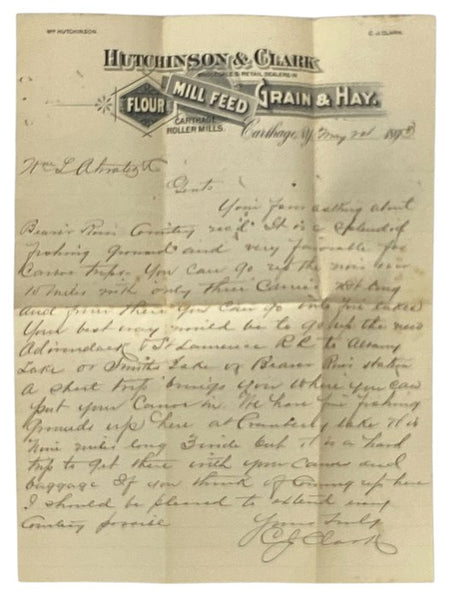 WM HUTCHINSON.
C. J. CLARK.
HUTCHINSON & CLARK,
WHOLESALE & RETAIL DEALERS IN
FLOUR MILL FEED GRAIN & HAY.
CARTHAGE
ROLLER MILLS.
Carthage, N.Y. May 2d 1893
Wm L Atwater
Gents
Your favor asking about
Beaver River Country rec'd. It is a splendid
fishing ground and very favorable for
Canoe trips. You can go up the river over
10 miles with only three Carries
and from there you can go into five lakes
Your best way would be to go up the new
Adirondack & St Lawrence R.R. to Albany
Lake or Smiths Lake or Beaver River station
A short trip brings you where you can
put your Canoe in. We have fine fishing
grounds up here at Cranberry Lake It is
Nine miles long 3 wide but it is a hard
trip to get there with your canoe and
baggage If you think of coming up here
I should be pleased to extend every
Courtesy possible
Yours truly
C J Clark